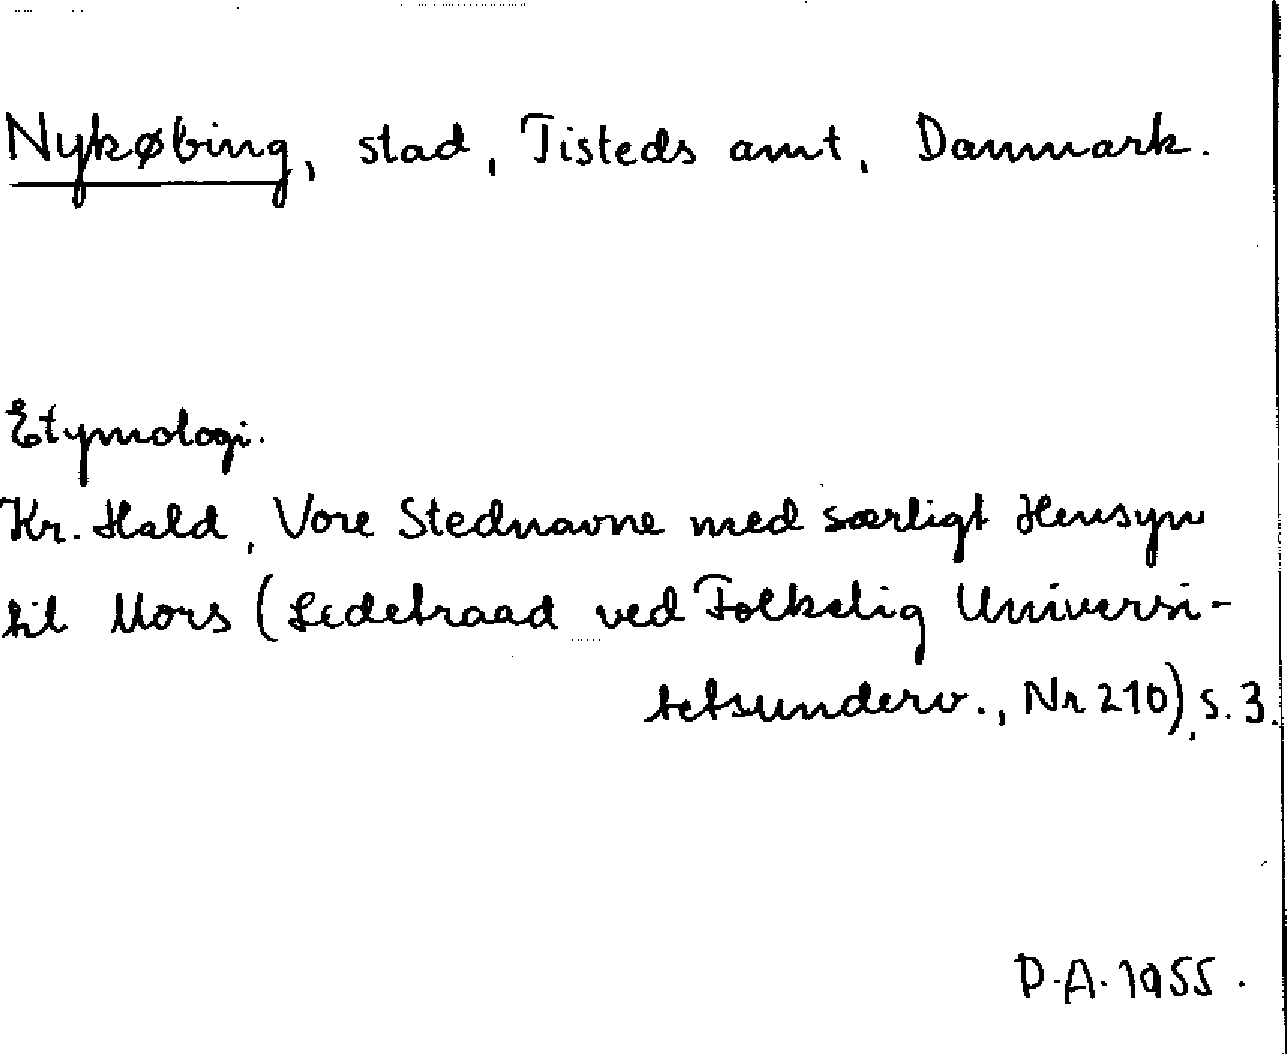 Nykøbing, stad, Tisteds amt, Danmark.
Etymologi.
Kr. Hald, Vore Stednavne med særligt Hensyn
til Mors (Ledetraad ved Folkelig Universi-
tetsunderv., Nr 210), s. 3.
D.A. 1955.